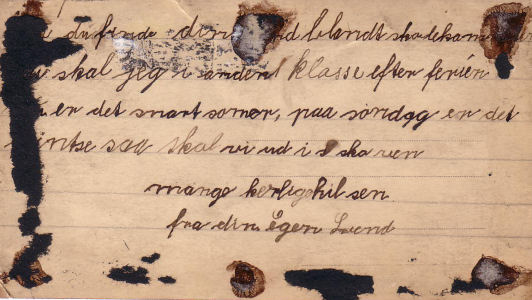 du finde din blandt
skal jeg i andent klasse efter ferien
er det snart somer, paa söndag er det
saa skal vi ud i skoven
mange kerlighilsen
fra din Egen